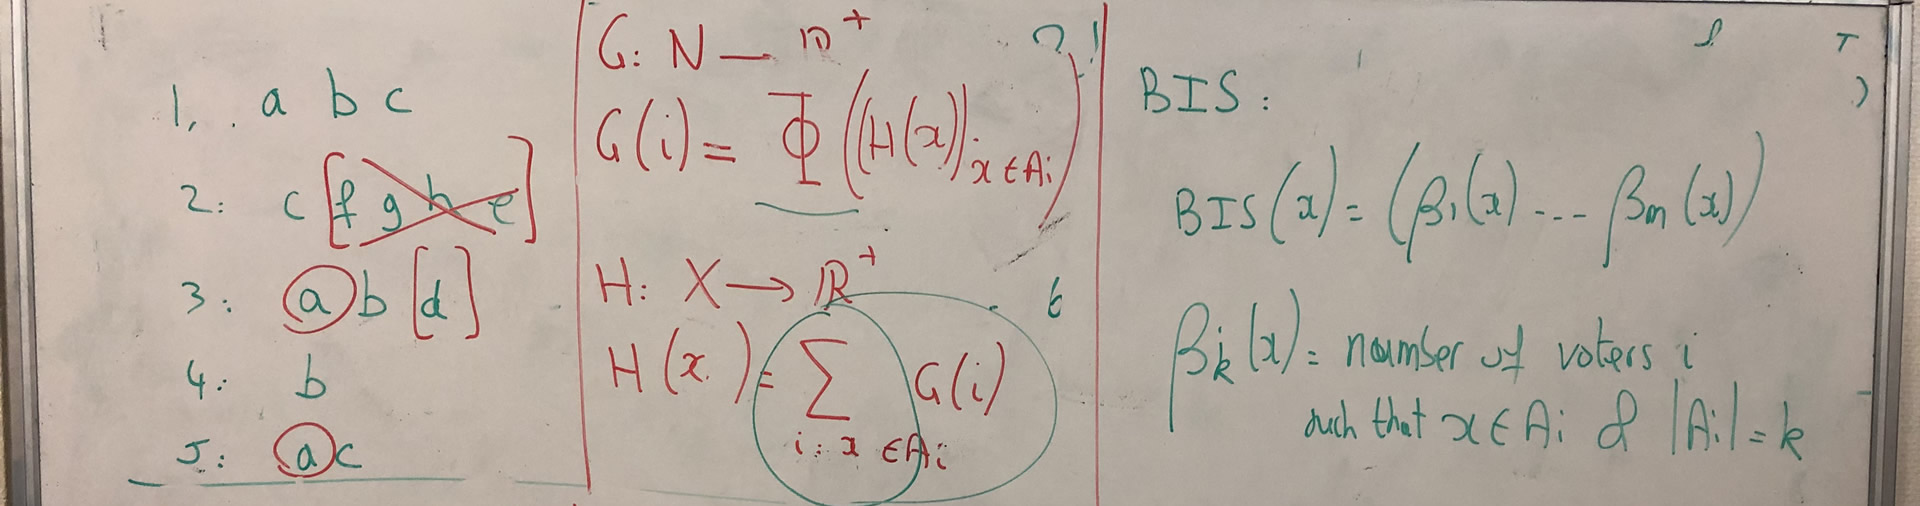 1, . a b c
2: c [f g h e]
3: a b [d]
4: b
5: a c
G: N — ℝ⁺ ?!
G(i) = Φ((H(x))x∈Ai)
H: X → ℝ⁺
H(x) = Σ i: x ∈ Ai G(i)
BIS:
BIS(x) = (β1(x) --- βm(x))
βk(x) = number of voters i
such that x ∈ Ai & |Ai| = k